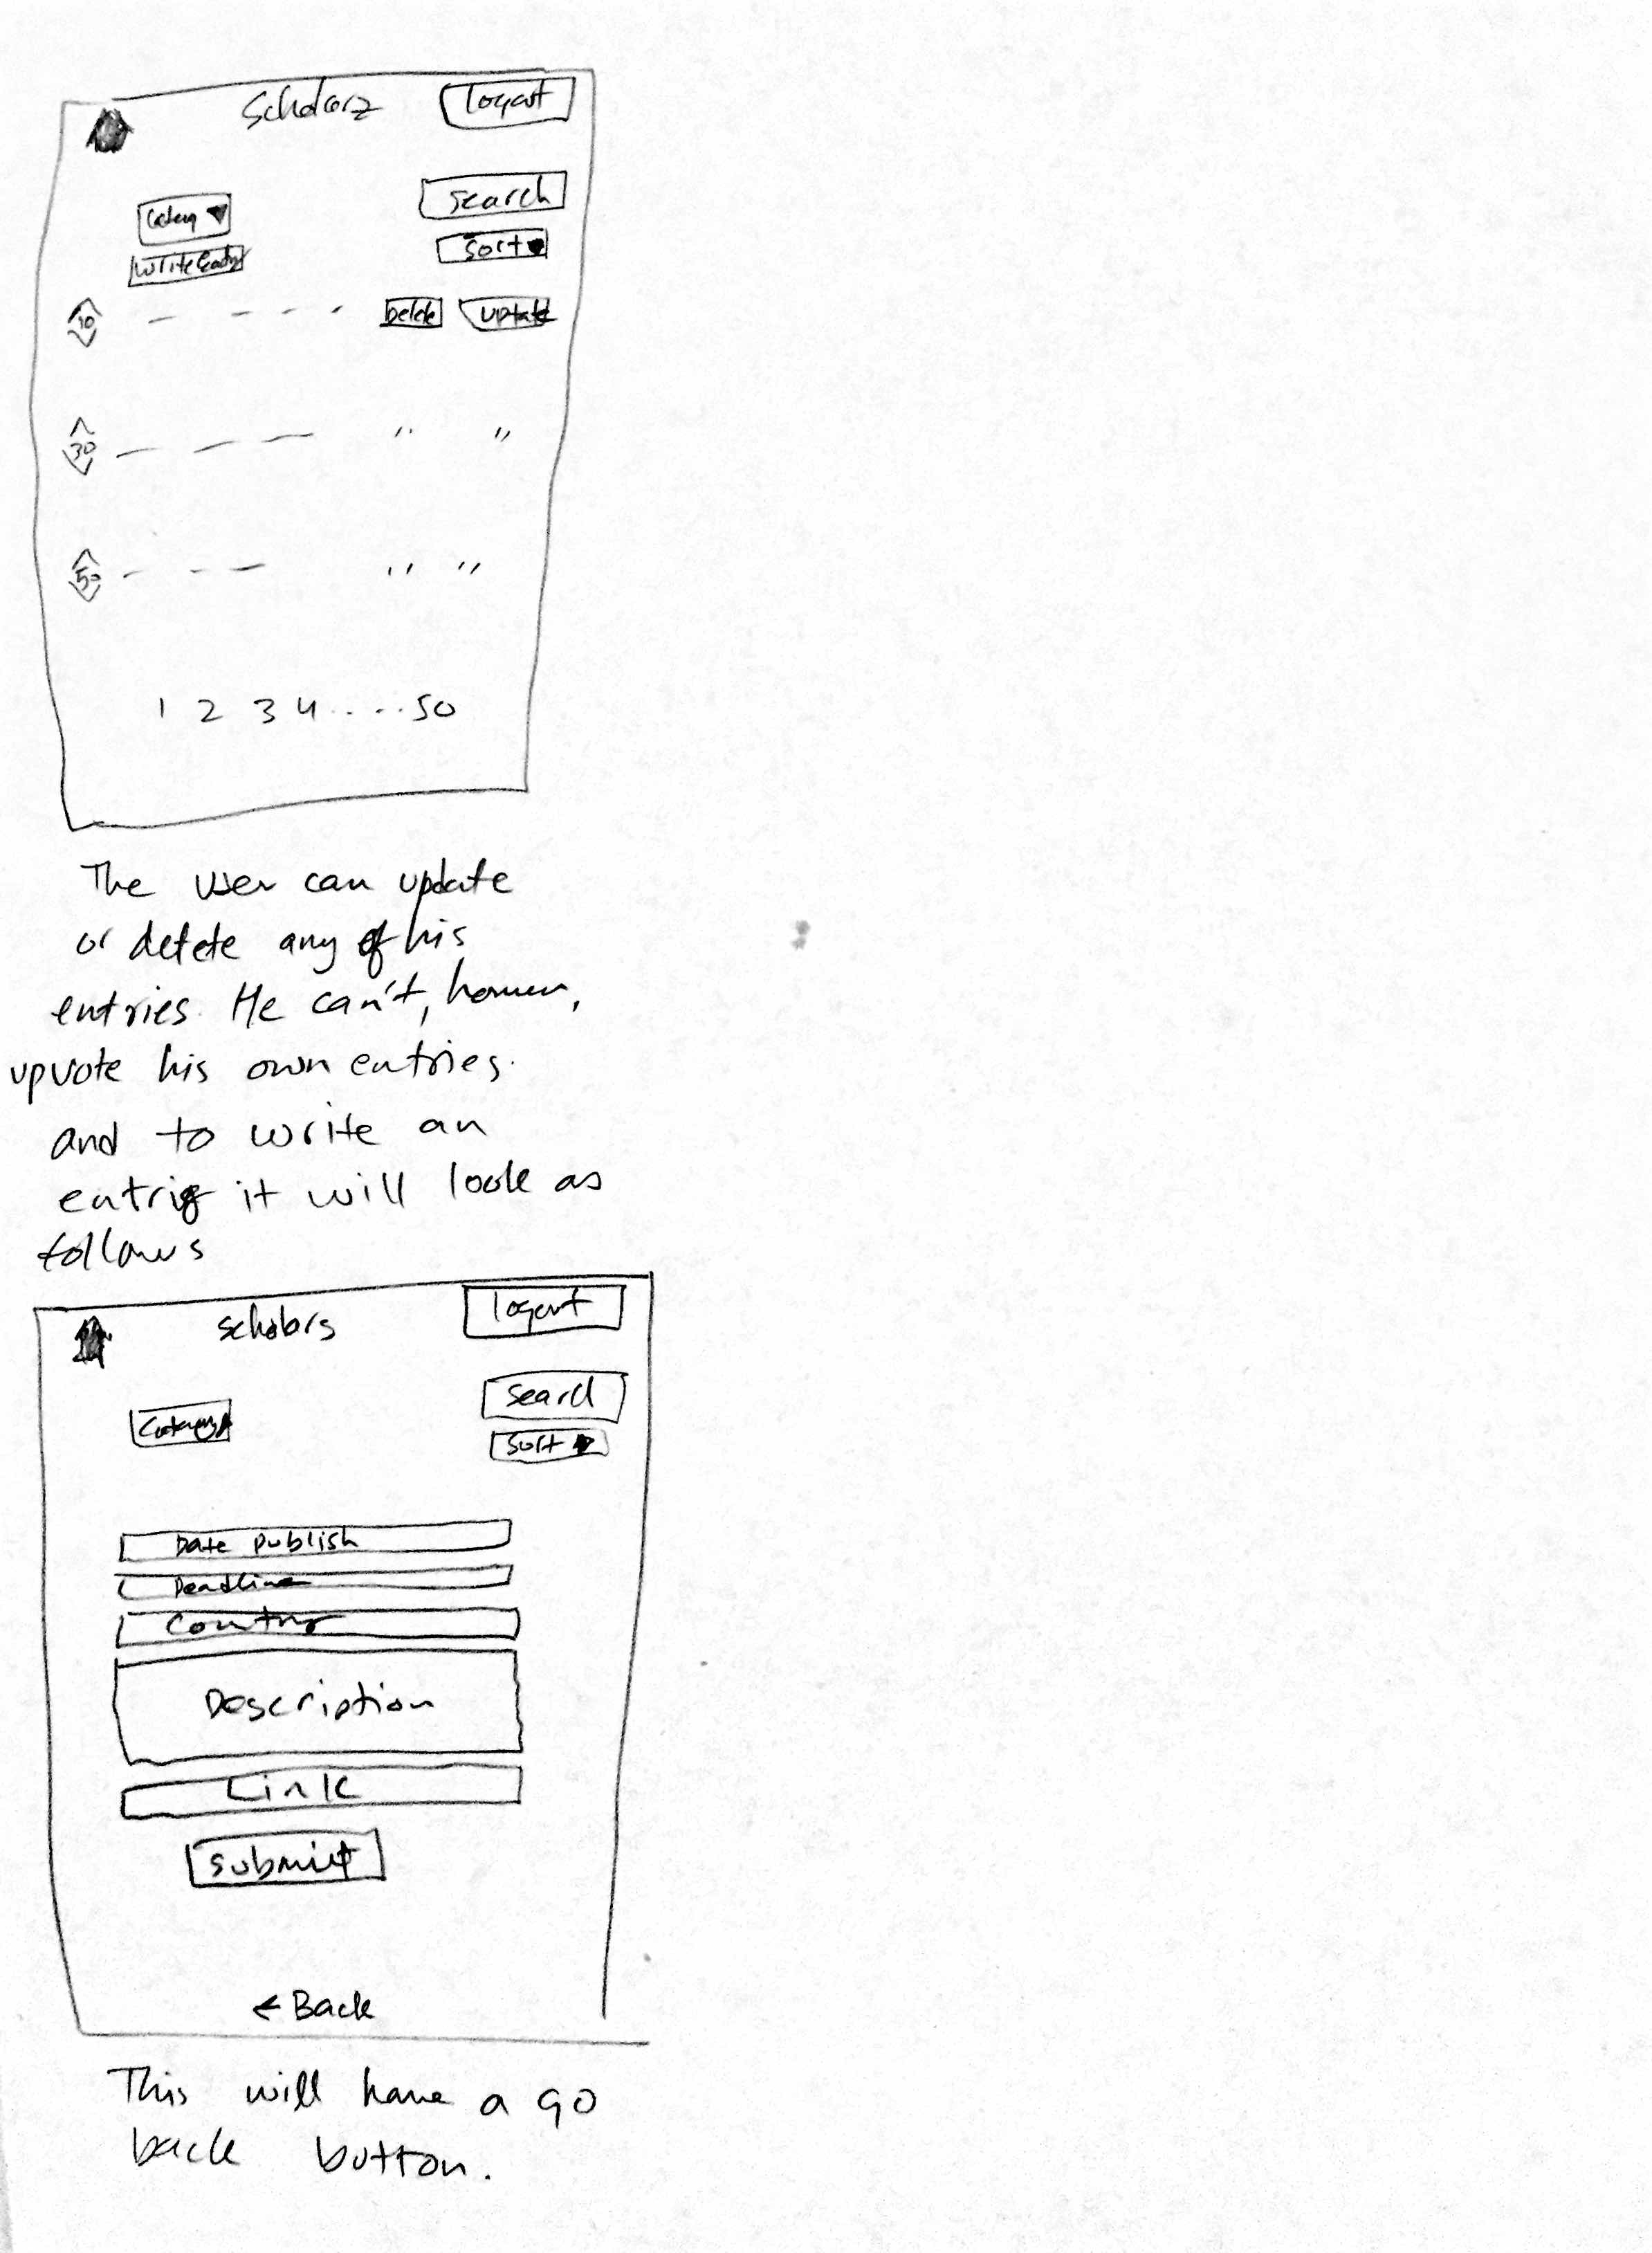 Scholarz
logout
search
sort
Delete update
10
30 " "
50 " "
1 2 3 4 .... 50
The user can update
or delete any of his
entries. He can't, however,
upvote his own entries.
and to write an
entrie it will look as
follows
scholars
logout
search
sort
Date publish
Deadline
Country
Description
Link
submit
← Back
This will have a go
back button.